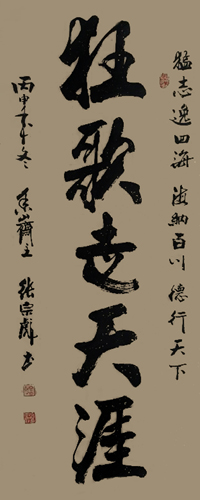 猛志逸四海 海纳百川 德行天下
狂歌走天涯
丙申年冬 斋主 张宗彪书